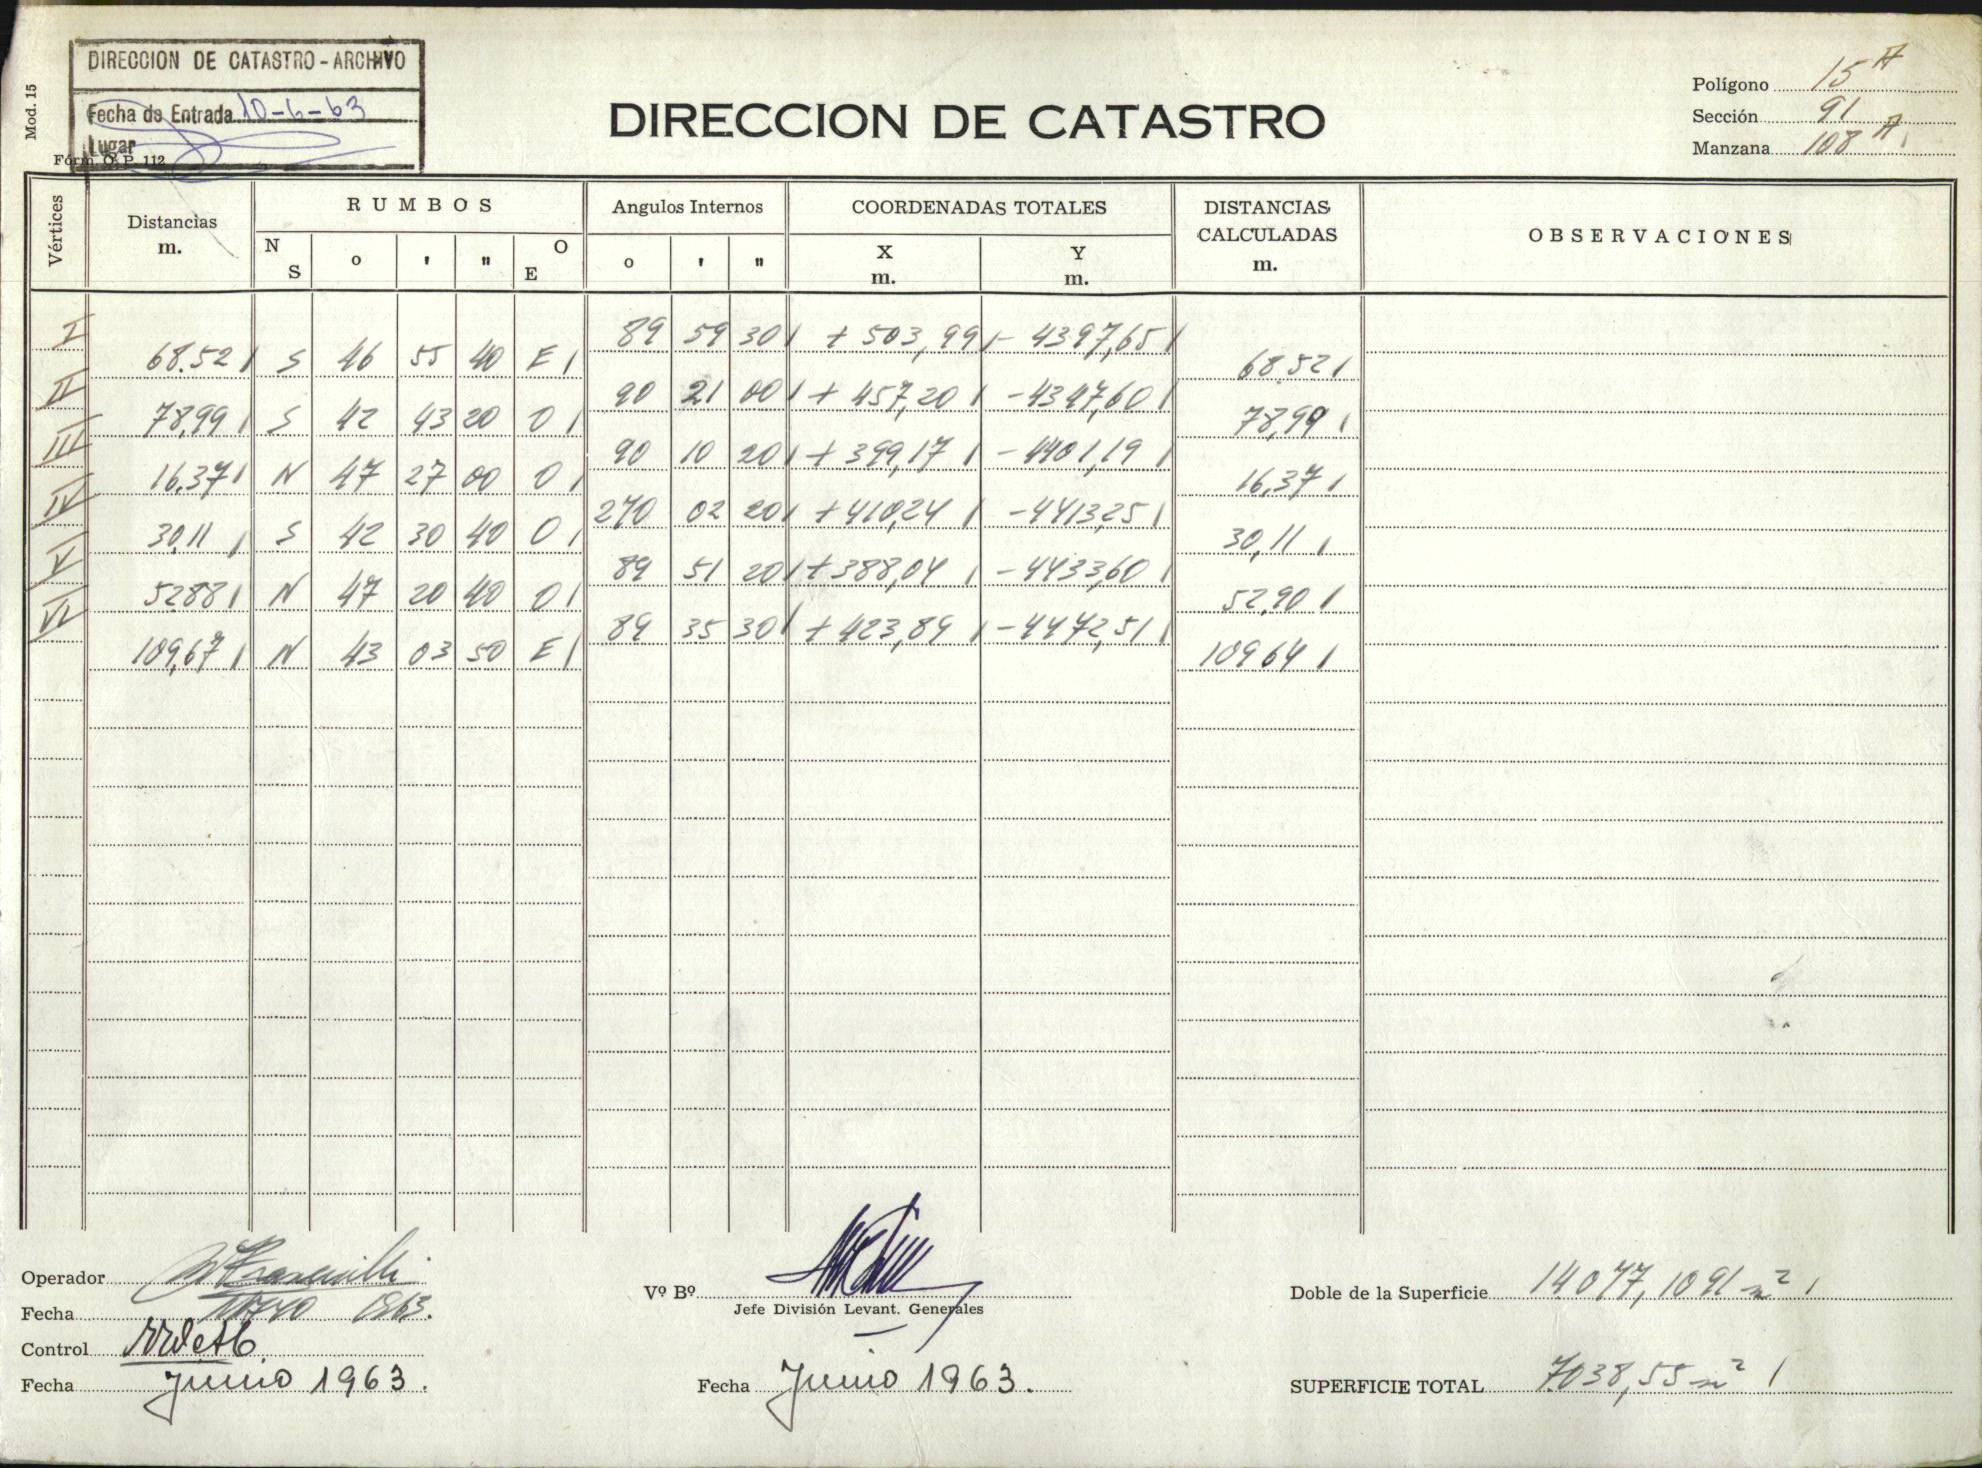 DIRECCION DE CATASTRO - ARCHIVO
Fecha de Entrada 10-6-63
Lugar
Mod. 15
Fórm. O. P. 112
DIRECCION DE CATASTRO
Polígono 15 A
Sección 91
Manzana 108 A
Vértices
Distancias m.
RUMBOS
N S o ' " O E
Angulos Internos
o ' "
COORDENADAS TOTALES
X m. Y m.
DISTANCIAS CALCULADAS m.
OBSERVACIONES
I 89 59 30 + 503,99 - 4397,65
68.52 S 46 55 40 E 68.52
II 90 21 00 + 457,20 - 4347,60
78,99 S 42 43 20 O 78,99
III 90 10 20 + 399,17 - 4401,19
16,37 N 47 27 00 O 16,37
IV 270 02 20 + 410,24 - 4413,25
30,11 S 42 30 40 O 30,11
V 89 51 20 + 388,04 - 4433,60
52,88 N 47 20 40 O 52,90
VI 89 35 30 + 423,89 - 4472,51
109,67 N 43 03 50 E 109,64
Operador
Fecha Mayo 1963.
Control
Fecha Junio 1963.
Vº Bº
Jefe División Levant. Generales
Fecha Junio 1963.
Doble de la Superficie 14.077,1091 m²
SUPERFICIE TOTAL 7.038,55 m²